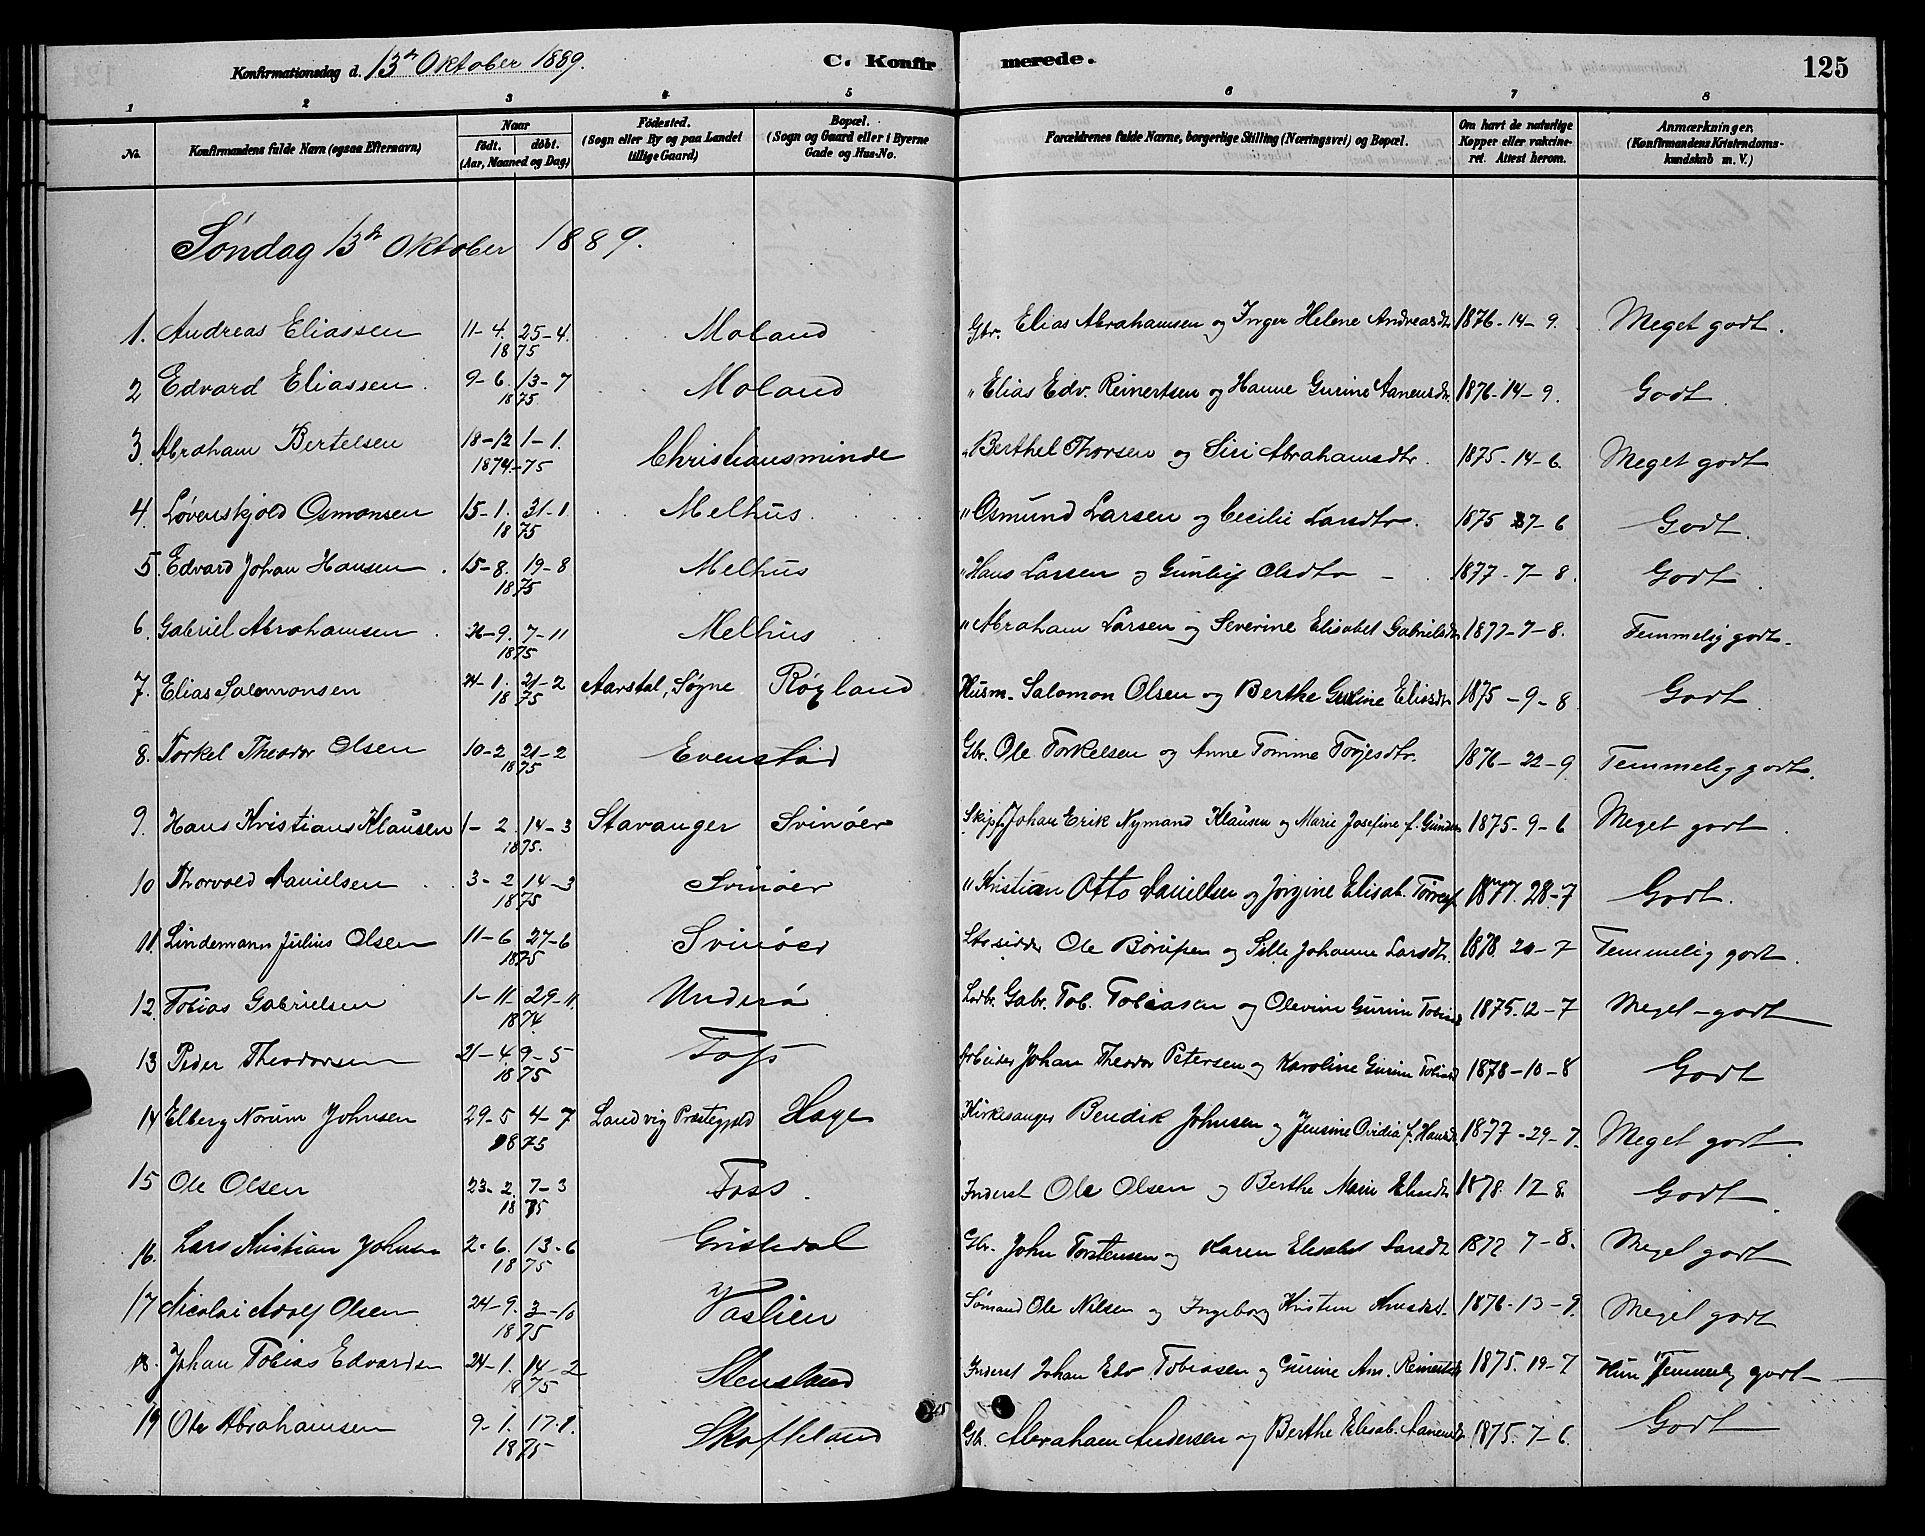 Konfirmationsdag d. 13de Oktober 1889. C. Konfirmerede. 125
1 2 3 4 5 6 7 8
No. Konfirmandens fulde Navn (ogsaa Efternavn) Naar født. døbt. (Aar, Maaned og Dag) Fødested. (Sogn eller By og paa Landet tillige Gaard) Bopæl. (Sogn og Gaard eller i Byerne Gade og Hus-No. Forældrenes fulde Navne, borgerlige Stilling (Næringsvei) og Bopæl. Om havt de naturlige Kopper eller vakcineret. Attest herom. Anmærkninger. (Konfirmandens Kristendomskundskab m. V.)
Søndag 13de Oktober 1889.
1. Andreas Eliassen 11-4. 25-4. 1875 Moland Gbr. Elias Abrahamsen og Inger Helene Andreasdtr 1876-14-9. Meget godt.
2 Edvard Eliassen. 9-6. 13-7 1875 Moland " Elias Edv. Reinertsen og Hanne Gurine Aanensdtr. 1876-14-9. Godt.
3. Abraham Bertelsen 18-12 1-1. 1874-75 Christiansminde " Berthel Thorsen og Siri Abrahamsdtr. 1875-14-6. Meget godt
4. Løvenskjold Osmonsen 15-1. 31-1 1875 Melhus " Osmund Larsen og Cecilie Larsdtr. 1875 7-6 Godt.
5. Edvard Johan Hansen. 15-8. 19-8 1875 Melhus " Hans Larsen og Olsdtr 1877-7-8. Godt.
6. Gabriel Abrahamsen. 26-9. 7-11 1875 Melhus " Abraham Larsen og Severine Elisabet Gabrielsdtr 1877-7-8. Temmelig godt.
7. Elias Salomonsen 24-1. 21-2 1875 Aarstal, Søgne Røgland Husm. Salomon Olsen og Berthe Eliasdtr 1875-9-8 Godt.
8. Torkel Theodor Olsen 10-2 21-2 1875 Evenstad Gbr. Ole Torkelsen og Anne Tomine Torjesdtr. 1876-22-9 Temmelig godt.
9. Hans Kristians Klausen 1-2. 14-3 1875. Stavanger Svinøer Skipp. Johan Erik Nymand Klausen og Marie Josefine f. 1875-9-6 Meget godt.
10 Thorvald Danielsen 3-2. 14-3 1875 Svinøer " Kristian Otto Danielsen og Jørgine Elisab. 1877. 28-7 Godt.
11. Lindemann Julius Olsen 11-6 27-6 1875 Svinøer Ole og Sille Johanne Larsdtr. 1878. 20-7 Temmelig godt.
12. Tobias Gabrielsen 1-11- 29-11. 1874 Underø Gabr. Tob. Tobiassen og Olevine Gurine 1875. 12-7 Meget-godt
13 Peder Theodorsen 21-4. 9-5 1875 Foss Arbeider Johan Theodor Petersen og Karoline Gurine 1878-10-8 Godt
14 Elberg Norum Johnsen 29-5 4-7 1875 Landvig Præstegjeld Hage Kirkesanger Bendik Johnsen og Jensine Ovidia f. 1877-29-7. Meget godt.
15 Ole Olsen 23-2. 7-3 1875 Foss. Inderst Ole Olsen og Berthe Marie 1878. 12 8. Godt.
16. Lars Kristian Johnsen 2-6. 13-6 1875 Gristedal Gbr. John Torstensen og Karen Elisabet Larsdtr 1877 7-8. Meget godt
17 Nicolai Adolf Olsen 24-9. 3-10 1875 Vaslien Sømand Ole Nilsen og Ingeborg Kristine 1876-13-9. Meget godt
18. Johan Tobias Edvardsen 24-1. 14-2 1875 Stensland Inderst Johan Edv Tobiasen og Gurine Reinertsdtr 1875. 19-7 Kun Temmelig godt
19 Ole Abrahamsen 9-1. 17-1. 1875 Skofteland Gbr. Abraham Andersen og Berthe Elisab. Aanensdtr 1875. 7-6. Godt